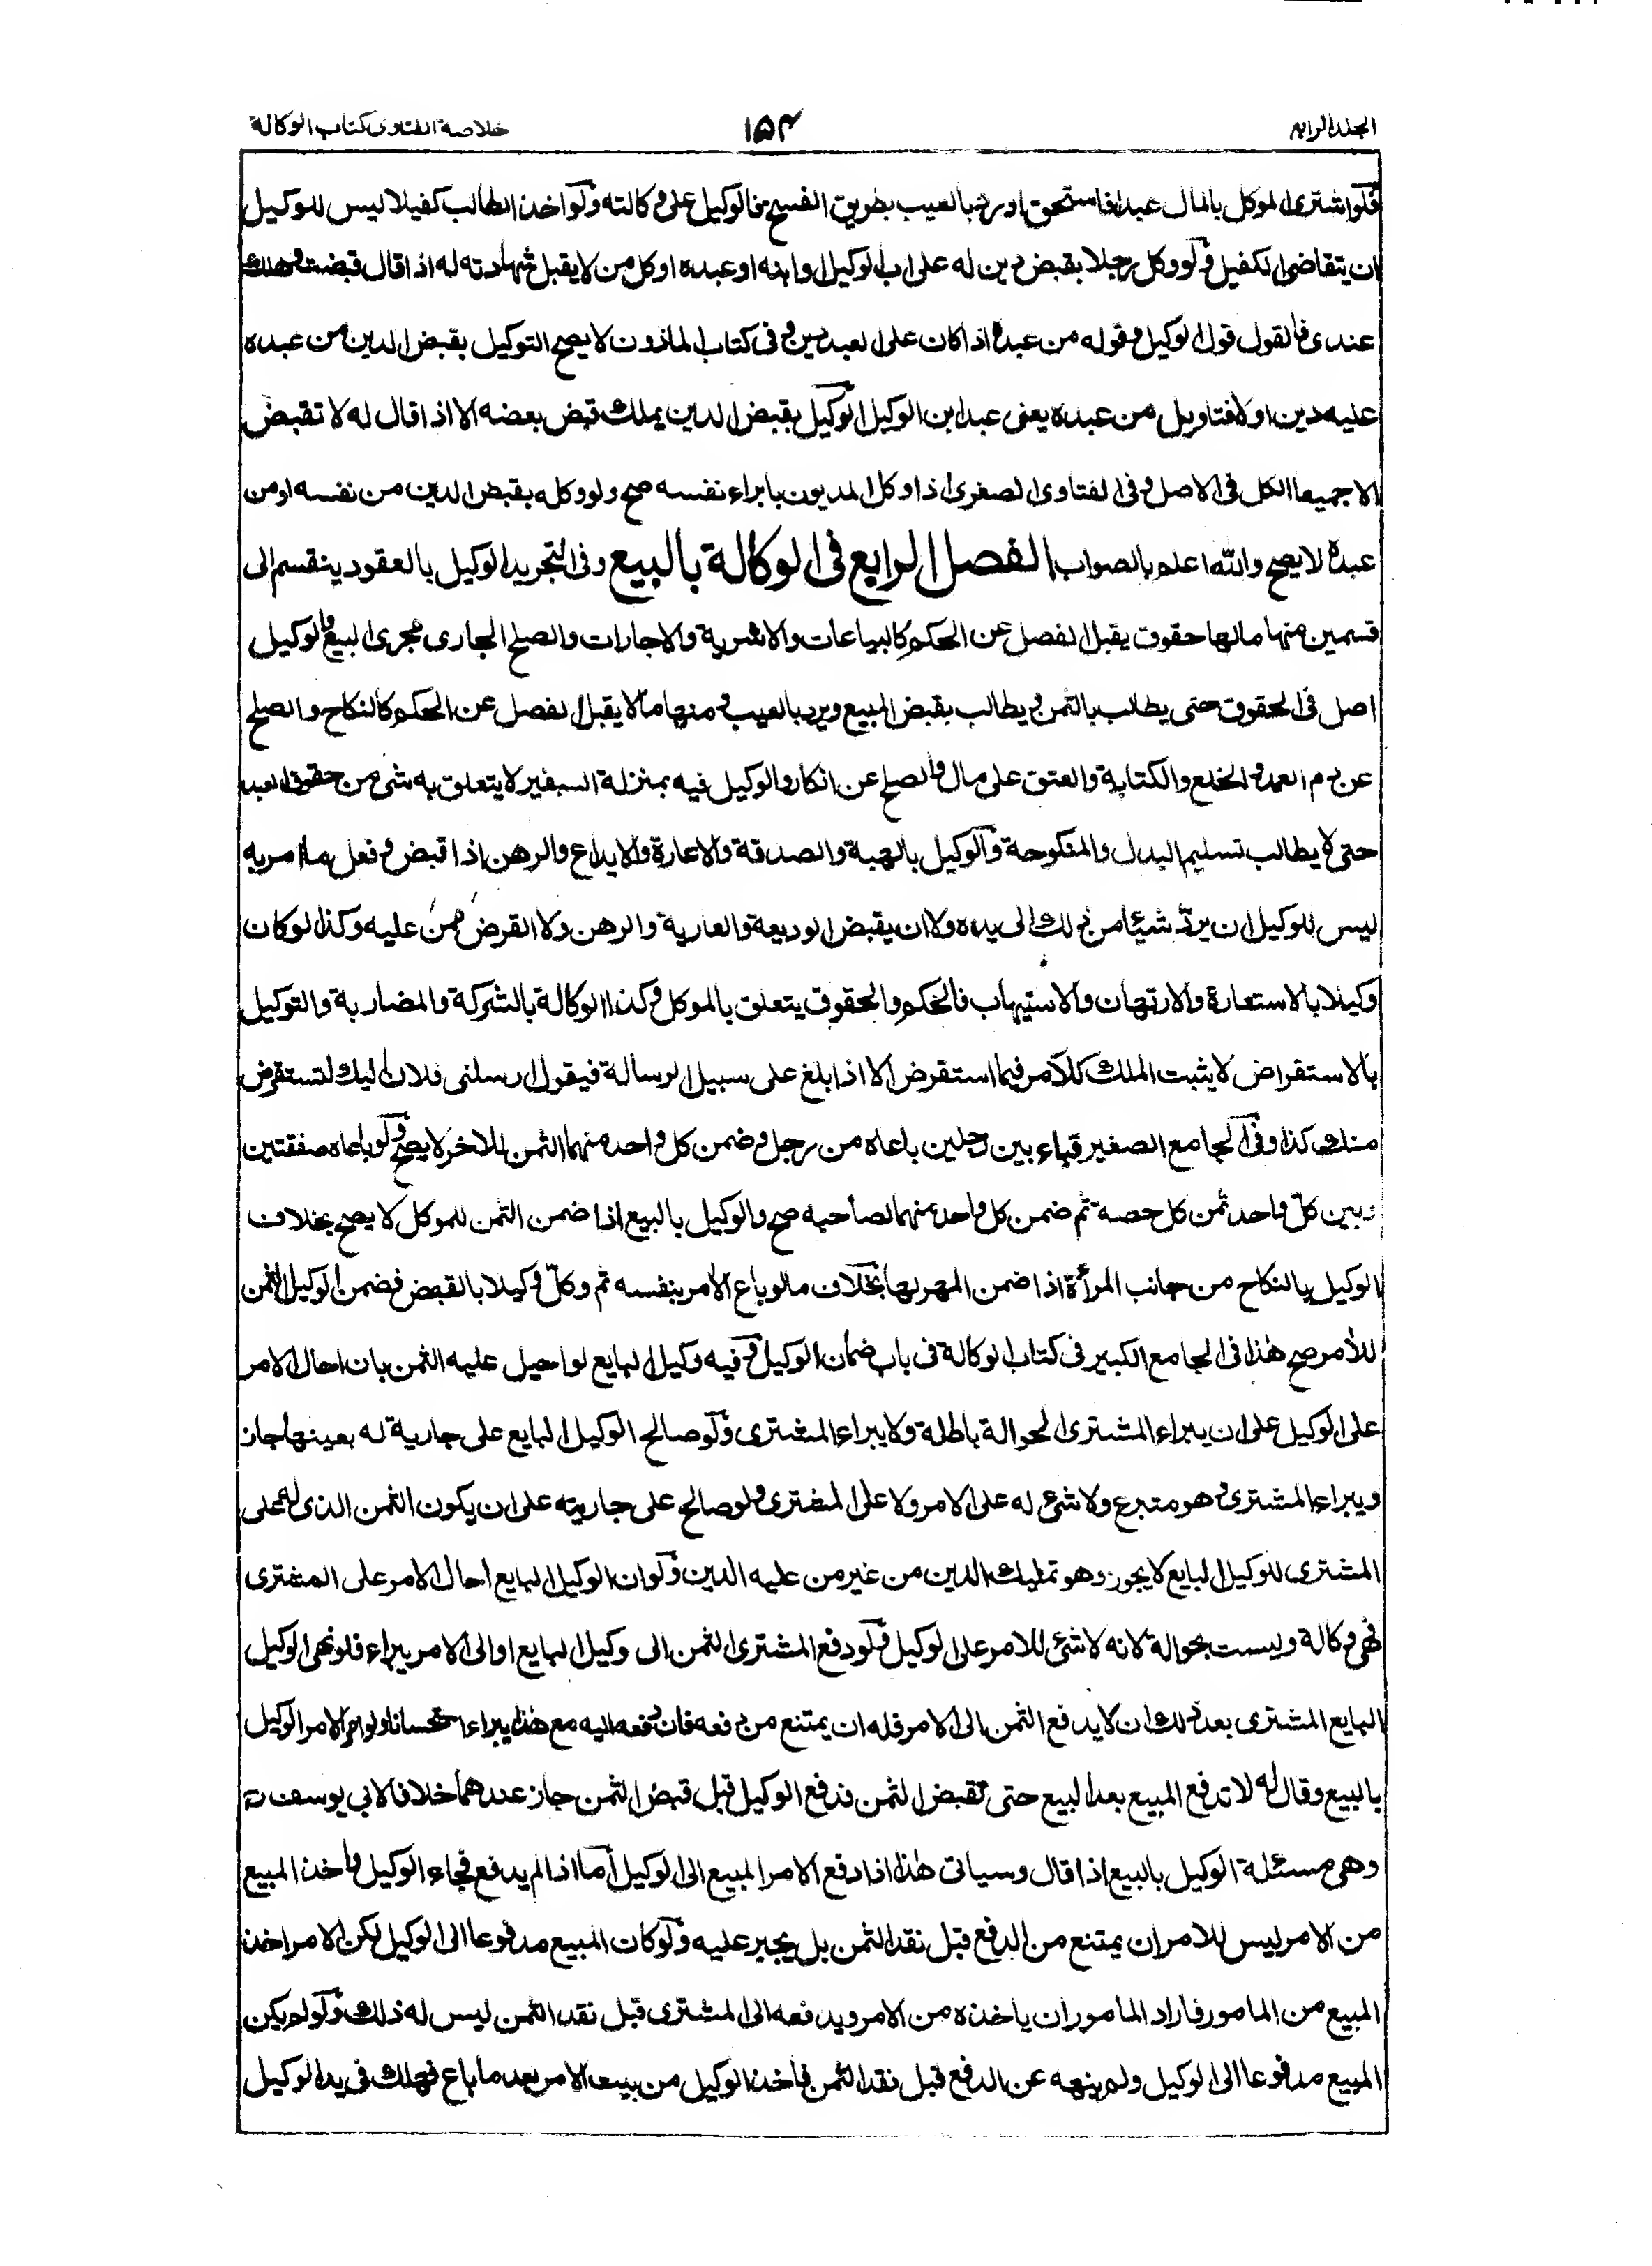 الجلد الرابع ١٥٤ خلاصة الفتاوى كتاب الوكالة
فلو اشترى الموكل بالمال عبدا فاستحق او رد بالعيب بطريق الفسخ فالوكيل على وكالته ولو اخذ الطالب كفيلا ليس للوكيل
ان يتقاضى الكفيل ولو وكل رجلا بقبض دين له على اب الوكيل او ابنه او عبده او كل من لا يقبل شهادته له اذا قال قبضت وهلك
عندى فالقول قول الوكيل وقوله من عبده اذا كان على العبد دين وفى كتاب الماذون لا يصح التوكيل بقبض الدين من عبده
عليه دين اولا فتاويل من عبده يعنى عبد ابن الوكيل الوكيل بقبض الدين يملك قبض بعضه الا اذا قال له لا تقبض
الا جميعا الكل فى الاصل وفى الفتاوى الصغرى اذا وكل المديون بابراء نفسه صح ولو وكله بقبض الدين من نفسه او من
عبده لا يصح والله اعلم بالصواب الفصل الرابع فى الوكالة بالبيع وفى التجريد الوكيل بالعقود ينقسم الى
قسمين منها مالها حقوق يقبل الفصل عن الحكم كالبياعات والاشرية والاجارات والصلح الجارى مجرى البيع والوكيل
اصل فى الحقوق حتى يطلب بالثمن ويطالب بقبض المبيع ويرد بالعيب ومنها ما لا يقبل الفصل عن الحكم كالنكاح والصلح
عن دم العمد والخلع والكتابة والعتق على مال والصلح عن انكار والوكيل فيه بمنزلة السفير لا يتعلق به شئ من حقوق العبد
حتى لا يطالب تسليم البدل والمنكوحة والوكيل بالهبة والصدقة والاعارة والايداع والرهن اذا قبض وفعل ما امر به
ليس للوكيل ان يردّ شيئا من ذلك الى يده ولا ان يقبض الوديعة والعارية والرهن ولا القرض ممن عليه وكذا لو كان
وكيلا بالاستعارة والارتهان والاستيهاب فالحكم والحقوق يتعلق بالموكل وكذا الوكالة بالشركة والمضاربة والتوكيل
بالاستقراض لا يثبت الملك للآمر فيما استقرض الا اذا بلغ على سبيل الرسالة فيقول ارسلنى فلان اليك لتستقرض
منك كذا وفى الجامع الصغير قباء بين رجلين باعاه من رجل وضمن كل واحد منهما الثمن للاخر لا يصح ولو باعاه صفقتين
وبين كلّ واحد ثمن كل حصة ثم ضمن كل واحد منهما لصاحبه صح والوكيل بالبيع اذا ضمن الثمن للموكل لا يصح بخلاف
الوكيل بالنكاح من جانب المرأة اذا ضمن المهر لها بخلاف ما لو باع الامر بنفسه ثم وكلّ وكيلا بالقبض فضمن الوكيل الثمن
للأمر صح هذا فى الجامع الكبير فى كتاب الوكالة فى باب ضمان الوكيل وفيه وكيل البايع لو احيل عليه الثمن بان احال الامر
على الوكيل على ان يبراء المشترى الحوالة باطلة ولا يبراء المشترى ولو صالح الوكيل البايع على جارية له بعينها جاز
ويبراء المشترى وهو متبرع ولا شئ له على الامر ولا على المشترى ولو صالح على جاريته على ان يكون الثمن الذى له على
المشترى للوكيل البايع لا يجوز وهو تمليك الدين من غير من عليه الدين ولو ان الوكيل البايع احال الامر على المشترى
فهى وكالة وليست بحوالة لانه لا شئ للامر على الوكيل ولو دفع المشترى الثمن الى وكيل البايع او الى الامر يبراء فلو نهى الوكيل
البايع المشترى بعد ذلك ان لا يدفع الثمن الى الامر فله ان يمتنع من دفعه فان دفعه اليه مع هذا يبراء استحسانا ولو امر الامر الوكيل
بالبيع وقال له لا تدفع المبيع بعد البيع حتى تقبض الثمن فدفع الوكيل قبل قبض الثمن جاز عندهما خلافا لابي يوسف رح
وهى مسئلة الوكيل بالبيع اذا قال وسياتى هذا اذا دفع الامر المبيع الى الوكيل أما اذا لم يدفع فجاء الوكيل واخذ المبيع
من الامر ليس للامر ان يمتنع من الدفع قبل نقد الثمن بل يجبر عليه ولو كان المبيع مدفوعا الى الوكيل لكن الامر اخذ
المبيع من المامور فاراد المامور ان ياخذه من الامر ويدفعه الى المشترى قبل نقد الثمن ليس له ذلك ولو لم يكن
المبيع مدفوعا الى الوكيل ولم ينهه عن الدفع قبل نقد الثمن فاخذ الوكيل من بيت الامر بعد ما باع فهلك فى يد الوكيل